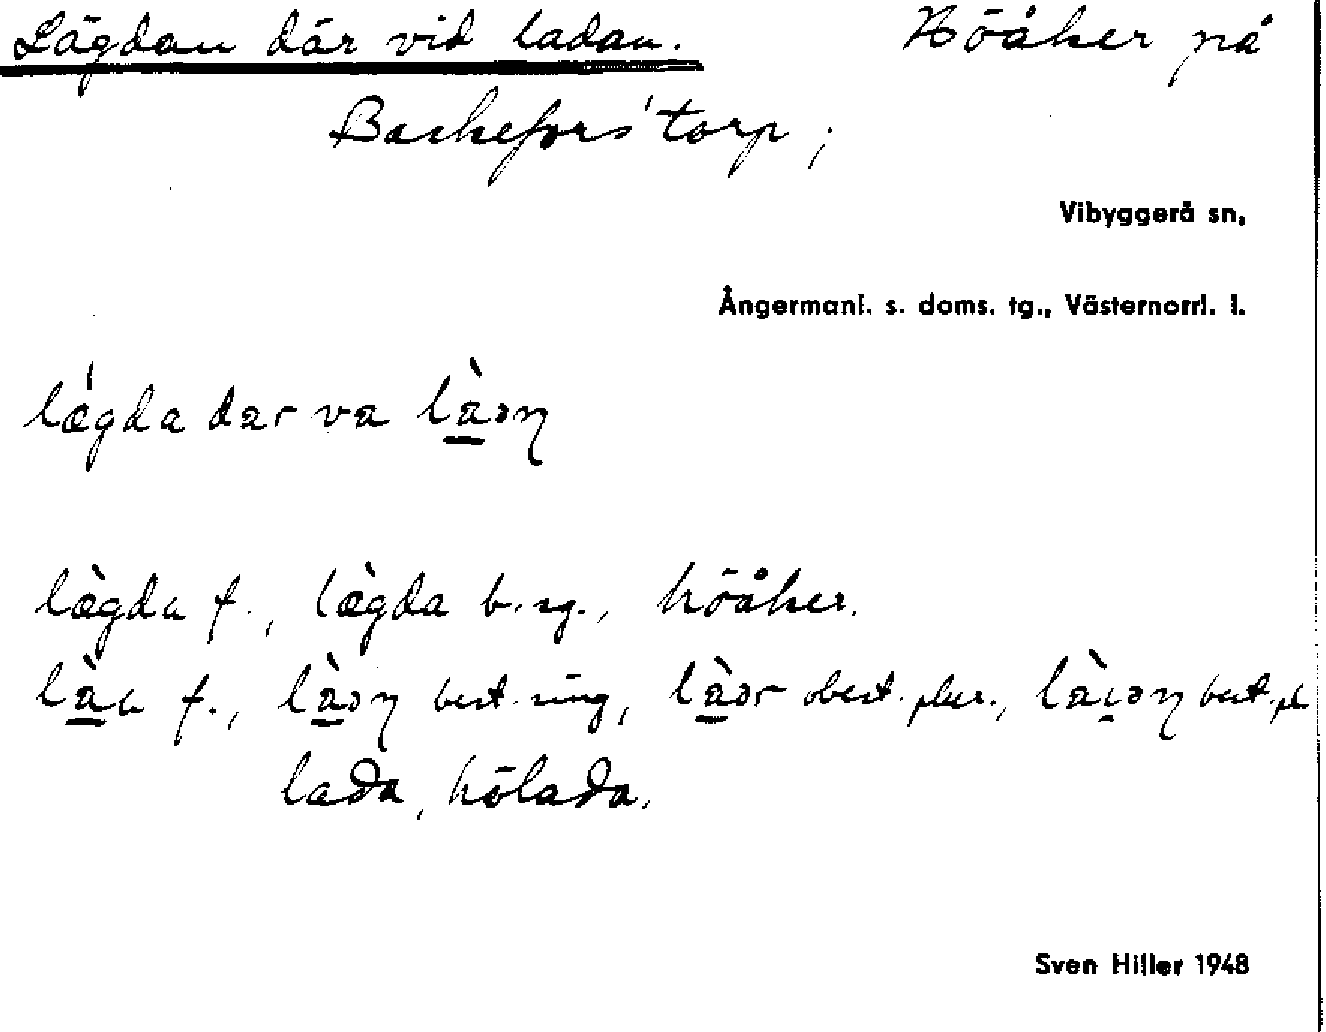 Lägdan där vid ladan. Höåker på
Backefors'torp;
Vibyggerå sn,
Ångermanl. s. doms. tg., Västernorrl. l.
lǽgda dar va là̱əɳ
læ̀gda f., læ̀gda b. sg., höåker.
là̱a f., là̱əɳ best. sing, là̱ər obest. plur., là̱ıəɳ best. pl
lada, hölada.
Sven Hiller 1948